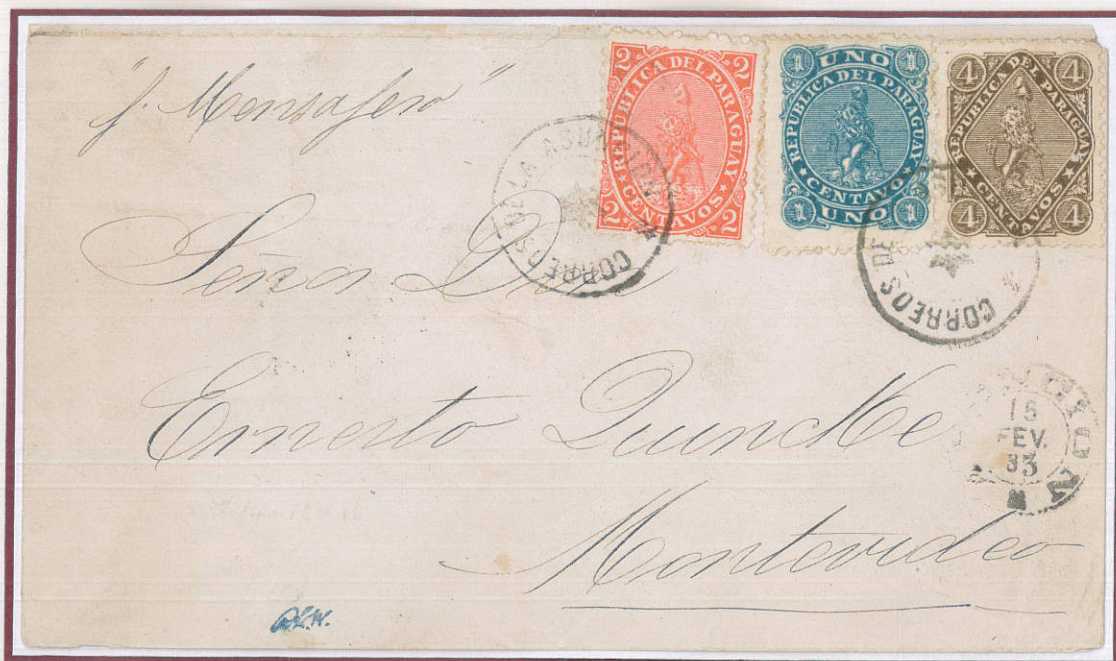 "p. Mensajero"
2 2
REPUBLICA DEL PARAGUAY
CENTAVOS
2 2
1 UNO 1
REPUBLICA DEL PARAGUAY
CENTAVO
1 UNO 1
4 4
REPUBLICA DEL PARAGUAY
CENTAVOS
4 4
CORREOS DE LA ASUNCION
CORREOS DE
Señor Don
Ernesto Quincke
Montevideo
15
FEV.
83